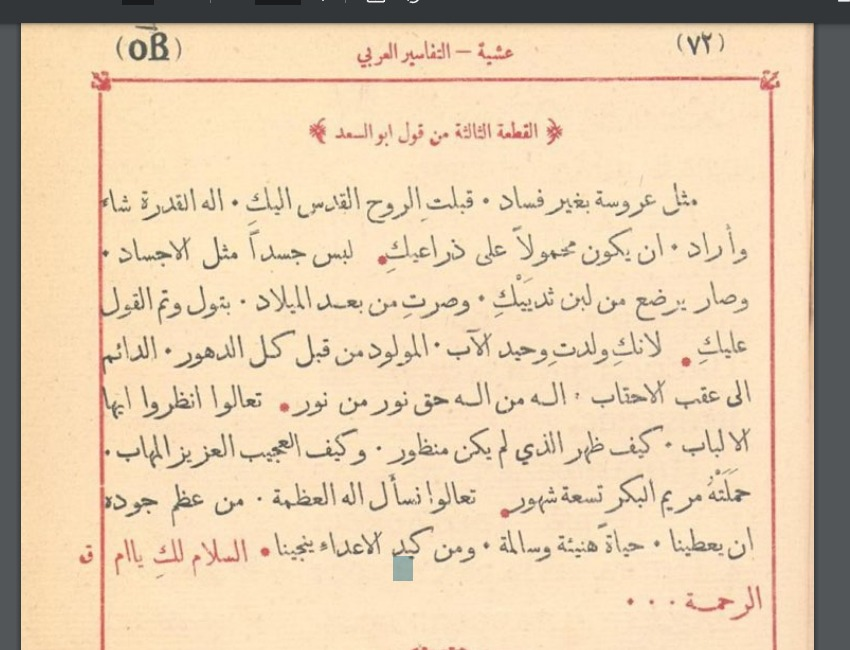 (٧٢) عشية — التفاسير العربي (ⲟⲃ)
القطعة الثالثة من قول ابو السعد
مثل عروسة بغير فساد · قبلتِ الروح القدس اليكِ · اله القدرة شاء
وأراد · ان يكون محمولاً على ذراعيكِ. لبس جسداً مثل الاجساد ·
وصار يرضع من لبن ثدييْكِ · وصرتِ من بعد الميلاد · بتول وتم القول
عليكِ. لانكِ ولدتِ وحيد الآب · المولود من قبل كل الدهور · الدائم
الى عقب الاحقاب · اله من اله حق نور من نور. تعالوا انظروا ايها
الالباب · كيف ظهر الذي لم يكن منظور · وكيف العجيب العزيز المهاب ·
حمَلَتْهُ مريم البكر تسعة شهور. تعالوا نسأل اله العظمة · من عظم جوده
ان يعطينا · حياة هنيئة وسالمة · ومن كيد الاعداء ينجينا. السلام لكِ ياام ق
الرحمة · · ·